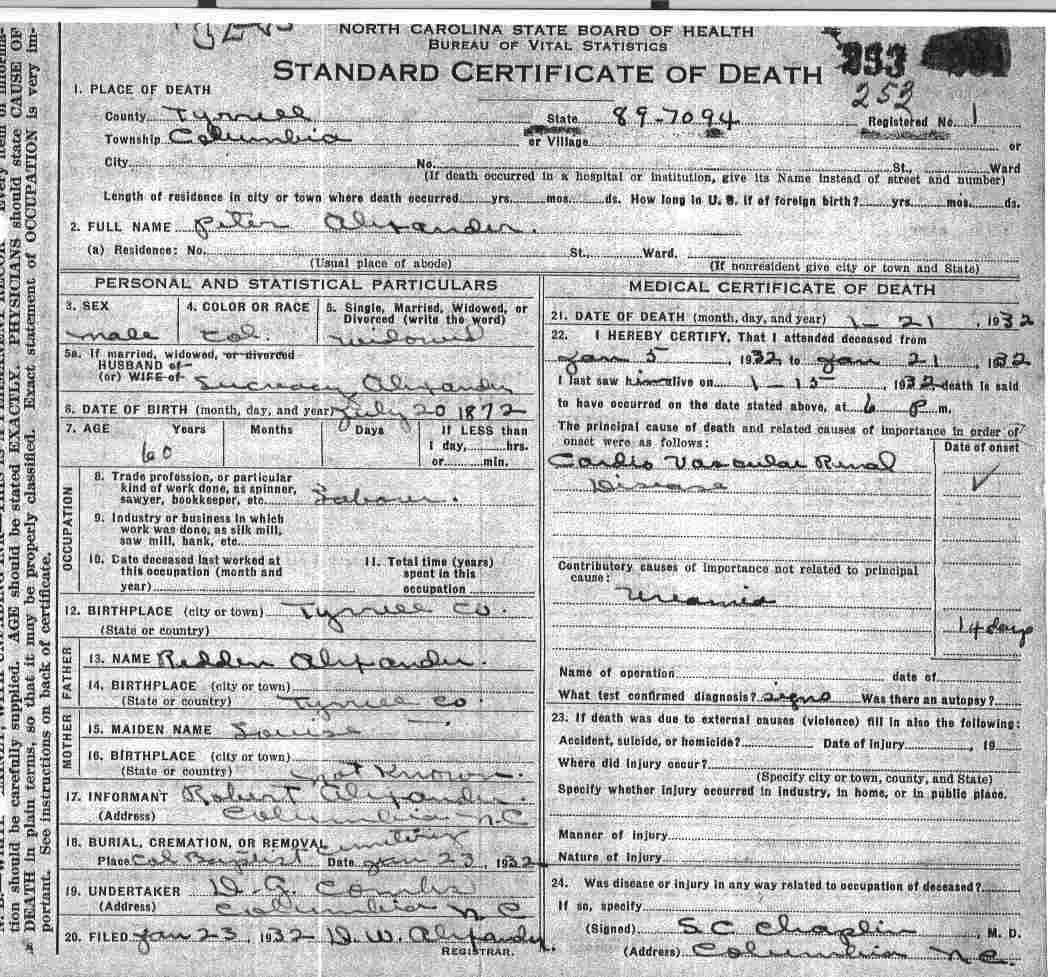 NORTH CAROLINA STATE BOARD OF HEALTH
BUREAU OF VITAL STATISTICS
STANDARD CERTIFICATE OF DEATH
233
253
1. PLACE OF DEATH
County Tyrrell State 89-7094 Registered No. 1
Township Columbia or Village or
City No. St., Ward
(If death occurred in a hospital or institution, give its Name instead of street and number)
Length of residence in city or town where death occurred yrs. mos. ds. How long in U. S. if of foreign birth? yrs. mos. ds.
2. FULL NAME Peter Alexander.
(a) Residence: No. St., Ward.
(Usual place of abode) (If nonresident give city or town and State)
PERSONAL AND STATISTICAL PARTICULARS
3. SEX 4. COLOR OR RACE 5. Single, Married, Widowed, or
Divorced (write the word)
male Col. widowed
5a. If married, widowed, or divorced
HUSBAND of
(or) WIFE of Alexander
6. DATE OF BIRTH (month, day, and year) July 20 1872
7. AGE Years Months Days If LESS than
1 day, hrs.
60 or min.
OCCUPATION
8. Trade profession, or particular
kind of work done, as spinner,
sawyer, bookkeeper, etc. Laborer.
9. Industry or business in which
work was done, as silk mill,
saw mill, bank, etc.
10. Date deceased last worked at 11. Total time (years)
this occupation (month and spent in this
year) occupation
12. BIRTHPLACE (city or town) Tyrrell Co.
(State or country)
FATHER
13. NAME Redden Alexander.
14. BIRTHPLACE (city or town)
(State or country) Tyrrell Co.
MOTHER
15. MAIDEN NAME Louise
16. BIRTHPLACE (city or town)
(State or country) not Known.
17. INFORMANT Robert Alexander.
(Address) Columbia N.C
18. BURIAL, CREMATION, OR REMOVAL Cemetery
Place Col Baptist Date Jan 23, 1932
19. UNDERTAKER D. G. Combs
(Address) Columbia N C
20. FILED Jan 23, 1932 D. W. Alexander.
REGISTRAR.
MEDICAL CERTIFICATE OF DEATH
21. DATE OF DEATH (month, day, and year) 1-21, 1932
22. I HEREBY CERTIFY, That I attended deceased from
Jan 5 1932 to Jan 21, 1932
I last saw him alive on 1-15, 1932 death is said
to have occurred on the date stated above, at 6 P m.
The principal cause of death and related causes of importance in order of
onset were as follows: Date of onset
Cardio Vascular Renal
Disease
Contributory causes of importance not related to principal
cause:
Uremia
14 days
Name of operation date of
What test confirmed diagnosis? signs Was there an autopsy?
23. If death was due to external causes (violence) fill in also the following:
Accident, suicide, or homicide? Date of injury, 19
Where did injury occur?
(Specify city or town, county, and State)
Specify whether injury occurred in industry, in home, or in public place.
Manner of injury
Nature of injury
24. Was disease or injury in any way related to occupation of deceased?
If so, specify
(Signed) S C Chaplin, M. D.
(Address) Columbia N.C.
tion should be carefully supplied. AGE should be stated EXACTLY. PHYSICIANS should state CAUSE OF
DEATH in plain terms, so that it may be properly classified. Exact statement of OCCUPATION is very im-
portant. See instructions on back of certificate.